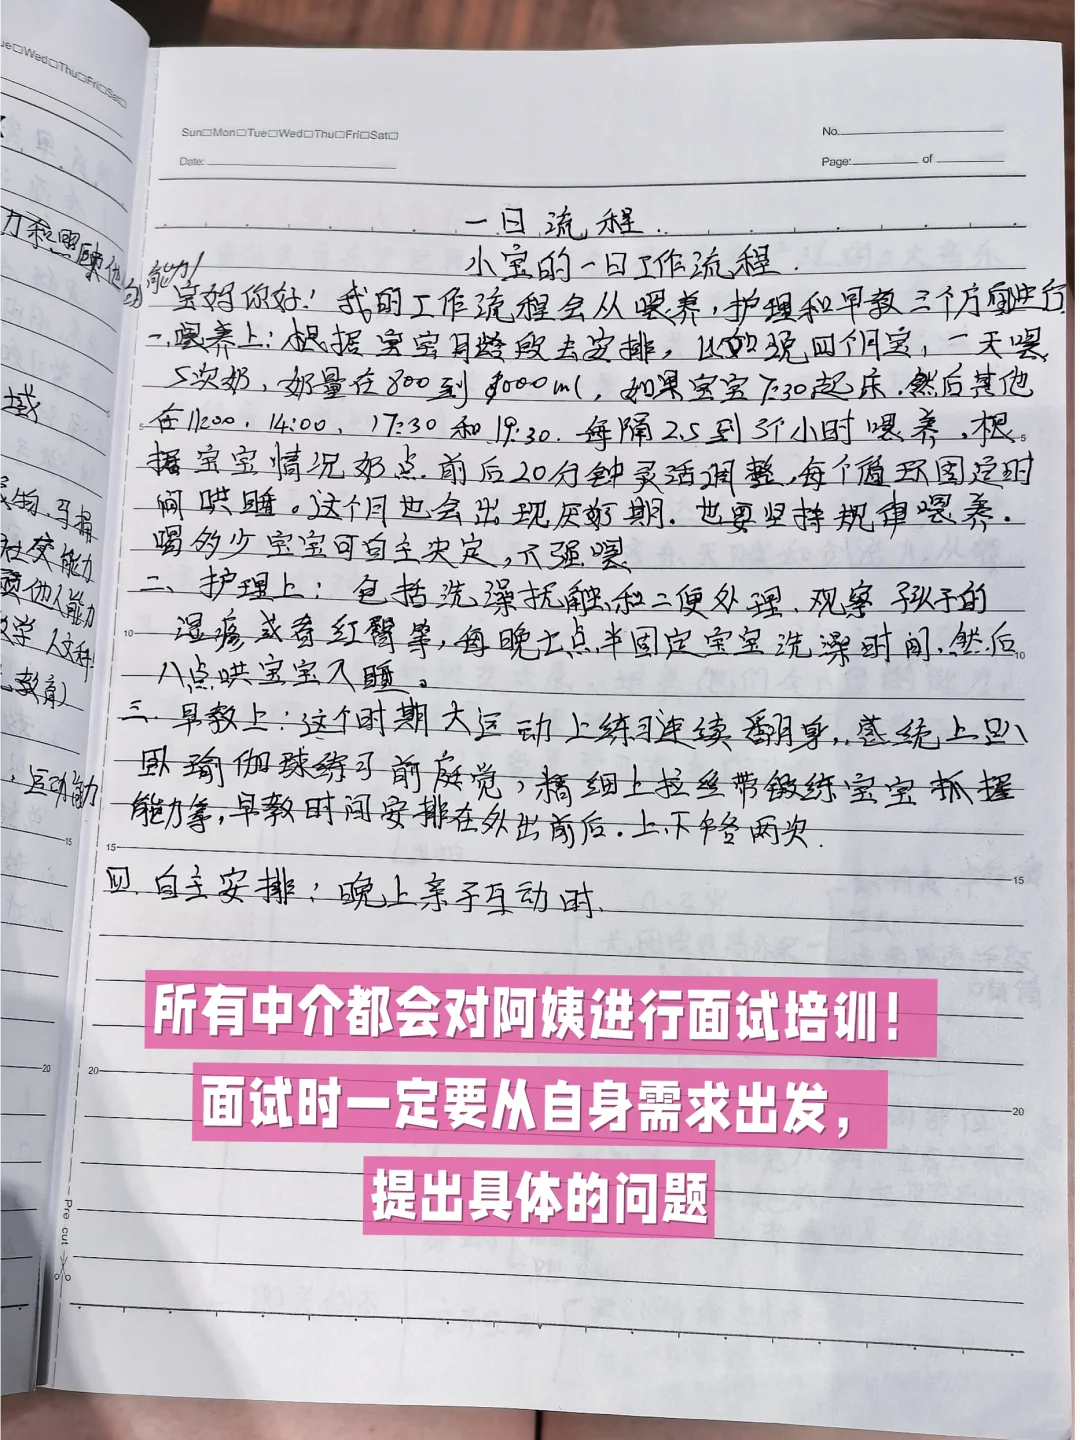 Wed□Thu□Fri□Sat□
力和照顾他
的能力!
域
社交能力
教育)
运动能力
15
20
Pre cut
Sun□Mon□Tue□Wed□Thu□Fri□Sat□
No.
Date:
Page: of
一日流程.
小宝的一日工作流程.
宝妈你好!我的工作流程会从喂养,护理和早教三个方面进行
一.喂养上:根据宝宝月龄段去安排,比如说四个月宝,一天喂
5次奶,奶量在800到1000ml,如果宝宝7:30起床.然后其他
在11:00.14:00、17:30和19:30.每隔2.5到3个小时喂养.根
据宝宝情况奶点前后20分钟灵活调整,每个循环固定时
间哄睡。这个月也会出现厌奶期.也要坚持规律喂养.
喝多少宝宝可自主决定,不强喂
二、护理上:包括洗澡抚触和二便处理、观察孩子的
湿疹或者红臀等,每晚七点半固定宝宝洗澡时间,然后
八点哄宝宝入睡。
三.早教上:这个时期大运动上练习连续翻身,感统上趴
卧瑜伽球练习前庭觉,精细上拉丝带锻练宝宝抓握
能力等,早教时间安排在外出前后.上、下午各两次.
四.自主安排:晚上亲子互动时.
5
5
10
10
15
15
20
20
所有中介都会对阿姨进行面试培训!
面试时一定要从自身需求出发,
提出具体的问题